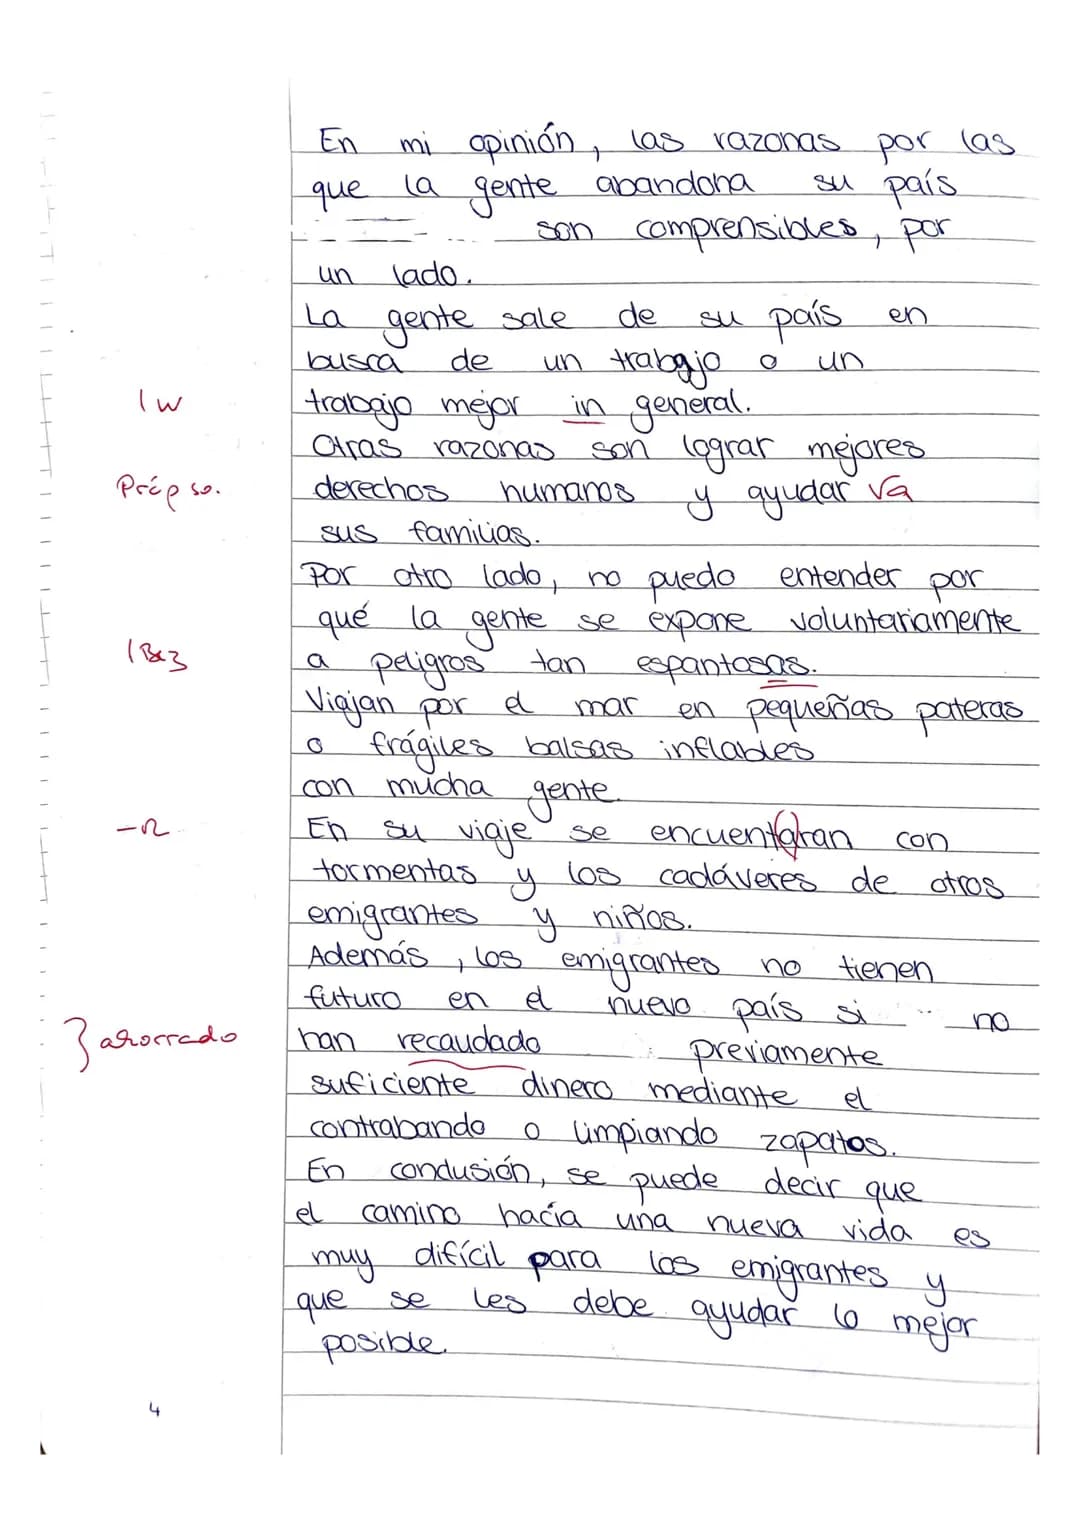 En mi opinión, las razonas por las
que la gente abandona su país
son comprensibles, por
un lado.
La gente sale de su país en
busca de un trabajo o un
I w trabajo mejor in general.
Otras razonas son lograr mejores
Präpso. derechos humanos y ayudar √a
sus familias.
Por otro lado, no puedo entender por
qué la gente se expone voluntariamente
a peligros tan espantosas.
Viajan por el mar en pequeñas pateras
o frágiles balsas inflables
con mucha gente.
-r En su viaje se encuentaran con
tormentas y los cadáveres de otros
emigrantes y niños.
Además, los emigrantes no tienen
futuro en el nuevo país si no
} ahorrado han recaudado previamente
suficiente dinero mediante el
contrabando o limpiando zapatos.
En conclusión, se puede decir que
el camino hacía una nueva vida es
muy difícil para los emigrantes y
que se les debe ayudar lo mejor
posible.
4